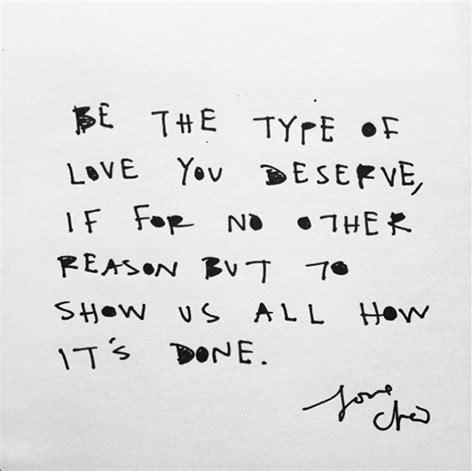 BE THE TYPE OF
LOVE YOU DESERVE,
IF FOR NO OTHER
REASON BUT TO
SHOW US ALL HOW
IT'S DONE.
love